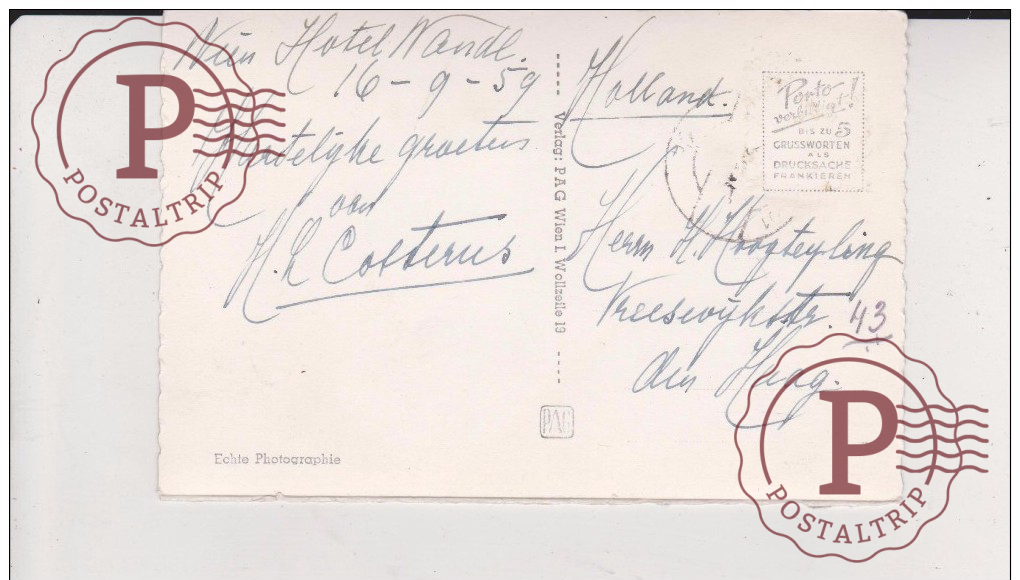 Wien Hotel Wandl.
16 - 9 - 59
Hartelijke groeten
van
H. Costerus
Echte Photographie
Verlag: PAG Wien I Wollzeile 13
PAG
Holland.
Porto
verbilligt!
BIS ZU 5
GRUSSWORTEN
ALS
DRUCKSACHE
FRANKIEREN
Herrn H. Hoogteyling
Vreeswijkstr. 43
den Haag.
P
POSTALTRIP
P
POSTALTRIP